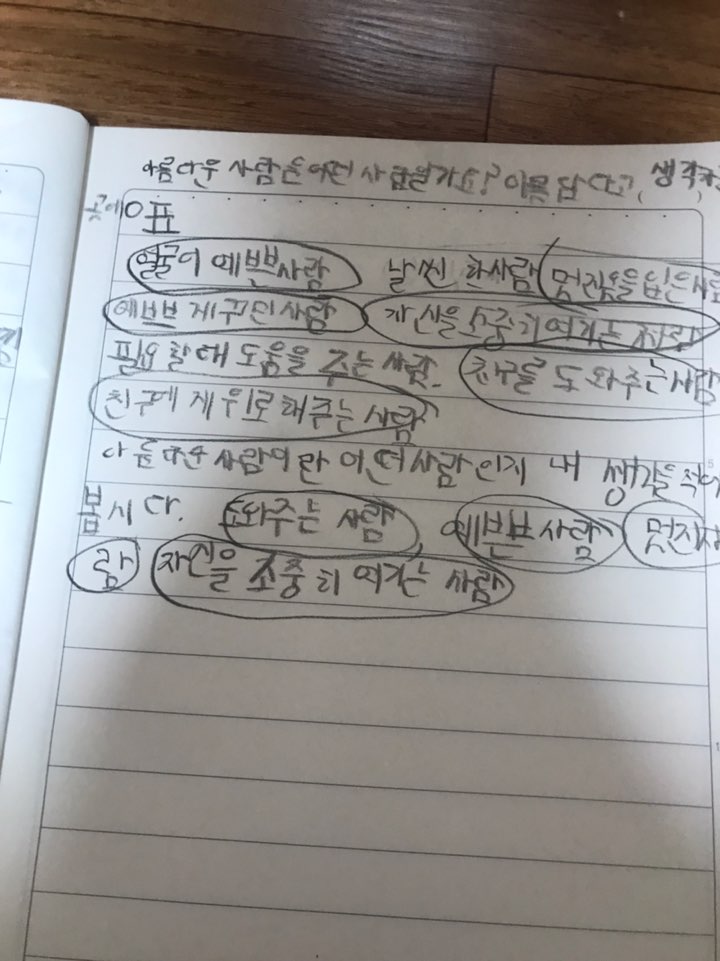 아름다운 사람은 어떤 사람일가요? 아름답다고 생각
곳에 O표
얼굴이 예쁜 사람 날씬 한사람 멋진옷을 입은사
예쁘 게꾸민 사람 자신을 소중히 여기는 사람
필요할때 도움을 주는 사람. 친구를 도와주는사람
친구에게 위로해주는 사람
아름다운 사람이란 어떤사람 인지 내 생각을 적어
봅시다. 도와주는 사람 예쁜 사람 멋진사
람 자신을 소중히 여기는 사람